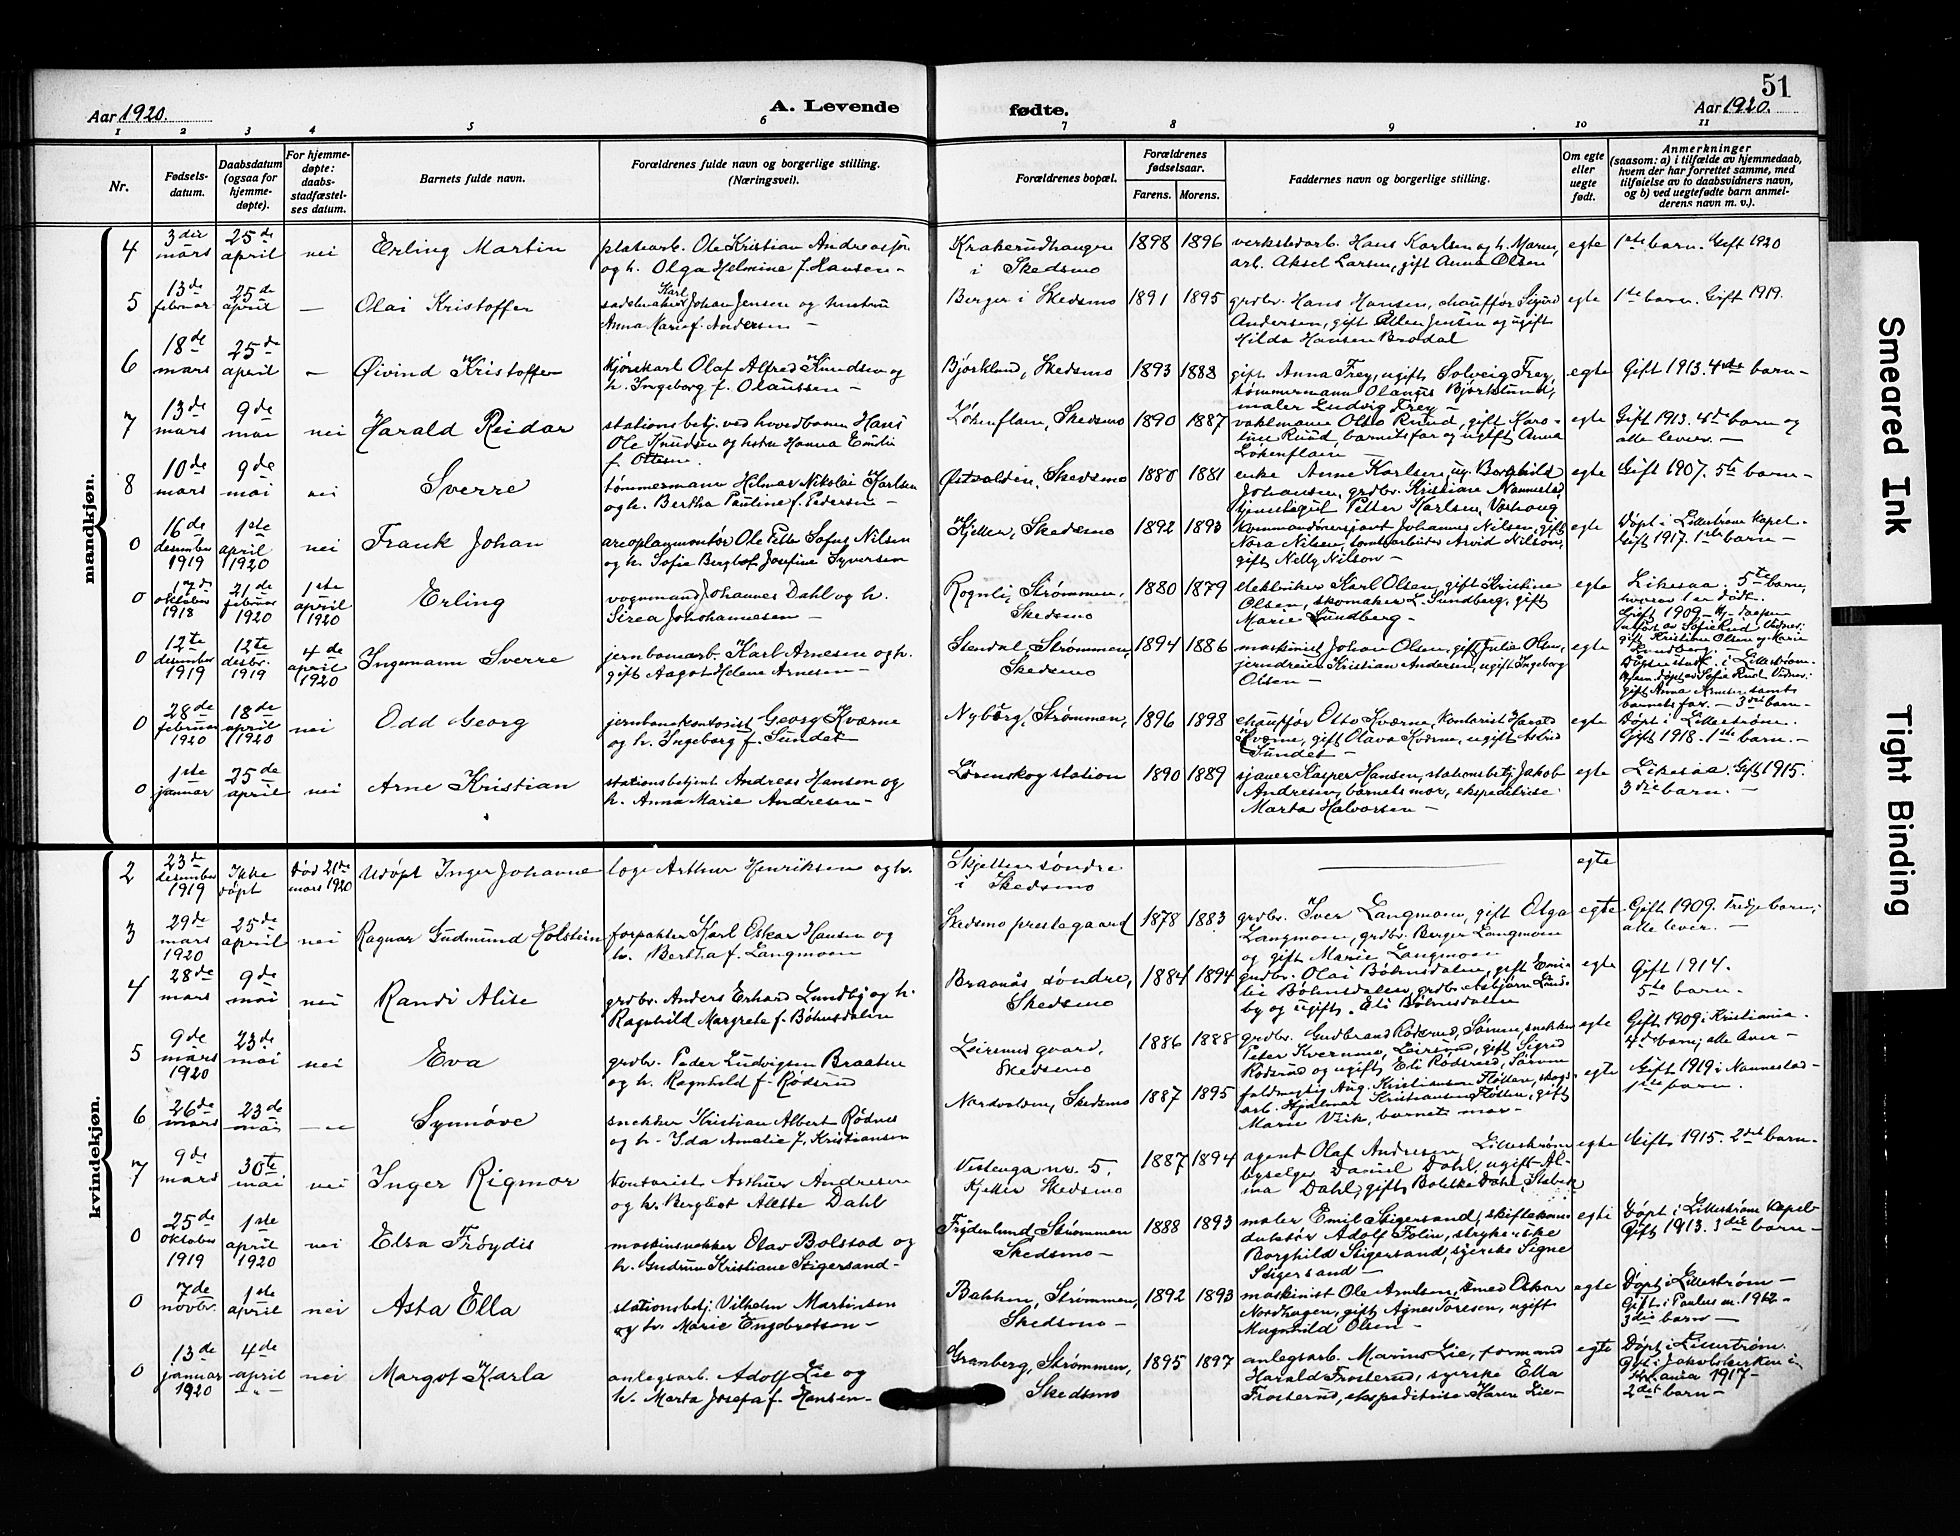 51
Aar 1920. A. Levende
fødte. Aar 1920.
1 2 3 4 5 6 7 8 9 10 11
Nr.
Fødsels-
datum.
Daabsdatum
(ogsaa for
hjemme-
døpte).
For hjemme-
døpte:
daabs-
stadfæstel-
ses datum.
Barnets fulde navn.
Forældrenes fulde navn og borgerlige stilling.
(Næringsvei).
Forældrenes bopæl.
Forældrenes
fødselsaar.
Farens. Morens.
Faddernes navn og borgerlige stilling.
Om egte
eller
uegte
født.
Anmerkninger
(saasom: a) i tilfælde av hjemmedaab,
hvem der har forrettet samme, med
tilføielse av to daabsvidners navn,
og b) ved uegtefødte barn anmel-
derens navn m. v.).
mandkjøn.
4
3die
mars
25de
april
nei
Erling Martin
platearb. Ole Kristian
og h. Olga Helmine f. Hansen –
i Skedsmo
1898 1896
verkstedarb. Hans Karlsen og h. Maren,
arb. Aksel Larsen, gift Anna Olsen
egte
1ste barn. Gift 1920
5
13de
februar
25de
april
—
Olai Kristoffer
Karl
sadelmaker Johan Jensen og hustru
Anna Marie f. Andersen –
Berger i Skedsmo
1891 1895
grdbr. Hans Hansen, chauffør Sigurd
Andersen, gift Ellen Jensen og ugift
Hilda Hansen Brodal
egte
1ste barn. Gift 1919.
6
18de
mars
25de
april
–
Øivind Kristoffer
kjørekarl Olaf Alfred Knudsen og
h. Ingeborg f. Olaussen –
Bjørklund, Skedsmo
1893 1888
gift Anna Frey, ugift Solveig Frey,
tømmermann Olaus Bjørkelund,
maler Ludvig Frey –
egte
Gift 1913. 4de barn –
7
13de
mars
9de
mai
nei
Harald Reidar
stationsbetj. ved hovedbanen Hans
Ole Knudsen og hstru Hanna Emilie
f. Ottesen.
Løkenflaen, Skedsmo
1890 1887
Otto Ruud, gift Karo-
line Ruud, barnets far og ugift Anna
Løkenflaen –
egte
Gift 1913. 4de barn og
alle lever. –
8
10de
mars
9de
mai
nei
Sverre
tømmermann Hilmar Nikolai Karlsen
og h. Bertha Pauline f. Pedersen –
Skedsmo
1880 1881
enke Anne Karlsen, ug. Borghild
Johansen, grdbr. Kristian Nannestad,
Petter Karlsen
egte
Gift 1907. 5te barn –
0
16de
desember
1919
1ste
april
1920
nei
Frank Johan
aeroplanmontør Ole Petter Sofus Nilsen
og h. Sofie Josefine Syversen
Kjeller, Skedsmo
1892 1893
Johannes Nilsen, gift
Nora Nilsen, Arvid Nilson,
gift Nelly Nilson –
egte
Døpt i Lillestrøm kapel.
Gift 1917. 1ste barn –
0
17de
oktober
1918
21de
februar
1920
1ste
april
1920
Erling
vognmand Johannes Dahl og h.
Sirea Johohannesen –
Rognli, Strømmen,
Skedsmo
1880 1879
elektriker Karl Olsen, gift Kristine
Olsen, skomaker L. Sundberg, gift
Marie Sundberg –
egte
Likesaa. 5te barn,
hvorav 1 er død.
Gift 1909 – Hj. daapen
utført av Sofie Rud Vidner:
gift Kristine Olsen og Marie
Sundberg. –
0
12te
desember
1919
12te
desbr.
1919
4de
april
1920
Ingemann Sverre
jernbanearb. Karl Arnesen og h.
gift Aagot Helene Arnesen –
Stendal, Strømmen,
Skedsmo
1894 1886
maskinist Johan Olsen, gift Julie Olsen,
jerndreier Kristian Andersen, ugift Ingeborg
Olsen –
egte
i Lillestrøm.
Hjem. døpt av Sofie Rud Vidner:
gift Anna Arnesen samt
barnets far. – 3die barn –
0
28de
februar
1920
18de
april
1920
nei
Odd Georg
jernbanekontorist Georg Kværne
og h. Ingeborg f. Sundet
Nyborg, Strømmen,
1896 1898
chauffør Otto Kværne, kontorist Harald
Kværne, gift Olava Kværne, ugift Astrid
Sundet –
egte
Døpt i Lillestrøm.
Gift 1918. 1ste barn. –
0
1ste
januar
25de
april
nei
Arne Kristian
stationsbetjent Andreas Hansen og
h. Anna Marie Andresen –
Lørenskog station
1890 1889
sjauer Kasper Hansen, stationsbetj. Jakob
Andresen, barnets mor, ekspeditrise
Marta Halvorsen –
egte
Likesaa. Gift 1915.
3die barn. –
kvindekjøn.
2
23de
desember
1919
Ikke
døpt
Død 21de
mars 1920
Udøpt Inger Johanne
loge Arthur Henriksen og h.
Skjetten søndre
i Skedsmo
egte
3
29de
mars
1920
25de
april
nei
Ragnar Gudmund Holstein
forpakter Karl Oskar Hansen og
h. Bertha f. Langmoen
Skedsmo prestegaard
1878 1883
grdbr. Iver Langmoen, gift Olga
Langmoen, grdbr. Berger Langmoen
og gift Marie Langmoen
egte
Gift 1909. Tredje barn;
alle lever. –
4
28de
mars
9de
mai
nei
Randi Alise
grdbr. Anders Erhard Lundby og h.
Ragnhild Margrete f. Bøhnsdalen
Braanås søndre,
Skedsmo
1884 1894
grdbr. Olai Bøhnsdalen, gift Emi-
lie Bøhnsdalen, grdbr. Asbjørn Lund-
by og ugift Eli Bøhnsdalen
egte
Gift 1914.
5te barn –
5
9de
mars
1920
23de
mai
nei
Eva
grdbr. Peder Ludvigsen Braaten
og h. Ragnhild f. Røderud
Leirsund gaard,
Skedsmo
1886 1888
grdbr. Gudbrand Røderud, Sørum, snekker
Peter Kverness, Leirsund, gift Sigrid
Røderud og ugift Eli Røderud, Sørum
egte
Gift 1909 i Kristiania.
4de barn; alle lever –
6
26de
mars
23de
mai
– „ –
Synnøve
snekker Kristian Albert Rødnes
og h. Ida Amalie f. Kristiansen
Nordvolden, Skedsmo
1887 1895
fuldmægtig Aug. Kristiansen Fløtten, skog-
arb. Hjalmar Kristiansen Fløtten, gift
Marie Vik, barnets mor –
egte
Gift 1919 i Nannestad –
1ste barn.
7
9de
mars
30te
mai
nei
Inger Rigmor
kontorist Arthur Andresen
og h. Bergliot Alette Dahl
Vestenga nr. 5,
Kjeller Skedsmo
1887 1894
agent Olaf Andresen, Lillestrøm,
Daniel Dahl, ugift Al-
ma Dahl, gift Bolette Dahl, Stabek
egte
Gift 1915. 2det barn –
0
25de
oktober
1919
1ste
april
1920
nei
Elsa Frøydis
maskinsnekker Olav Bolstad og
h. Gudrun Kristiane Stigersand –
Frydenlund, Strømmen
Skedsmo –
1888 1893
maler Emil Stigersand, skiftekon-
duktør Adolf Folin, strykerske
Borghild Stigersand, syerske Signe
Stigersand –
egte
Døpt i Lillestrøm kapel
Gift 1913. 3die barn –
0
7de
novbr.
1ste
april
nei
Asta Ella
stationsbetj. Vilhelm Martinsen
og h. Marie Engebretsen –
Bakken, Strømmen,
Skedsmo –
1892 1893
maskinist Ole Arnesen, smed Oskar
Nordhagen, gift Agnes Toresen, ugift
Magnhild Olsen –
egte
Døpt i Lillestrøm –
Gift i Paulus m. 1912 –
3die barn –
0
13de
januar
1920
4de
april
– „ –
nei
Margot Karla
anlegsarb. Adolf Lie og
h. Marta Josefa f. Hansen –
Granberg, Strømmen,
Skedsmo
1895 1897
anlegsarb. Marius Lie, formand
Harald Frosterud, syerske Ella
Frosterud, ekspeditrise Karen Lie –
egte
Døpt i Lillestrøm.
Gift i Jakobskirken i
Kr.ania 1917 –
2det barn –
Smeared Ink
Tight Binding